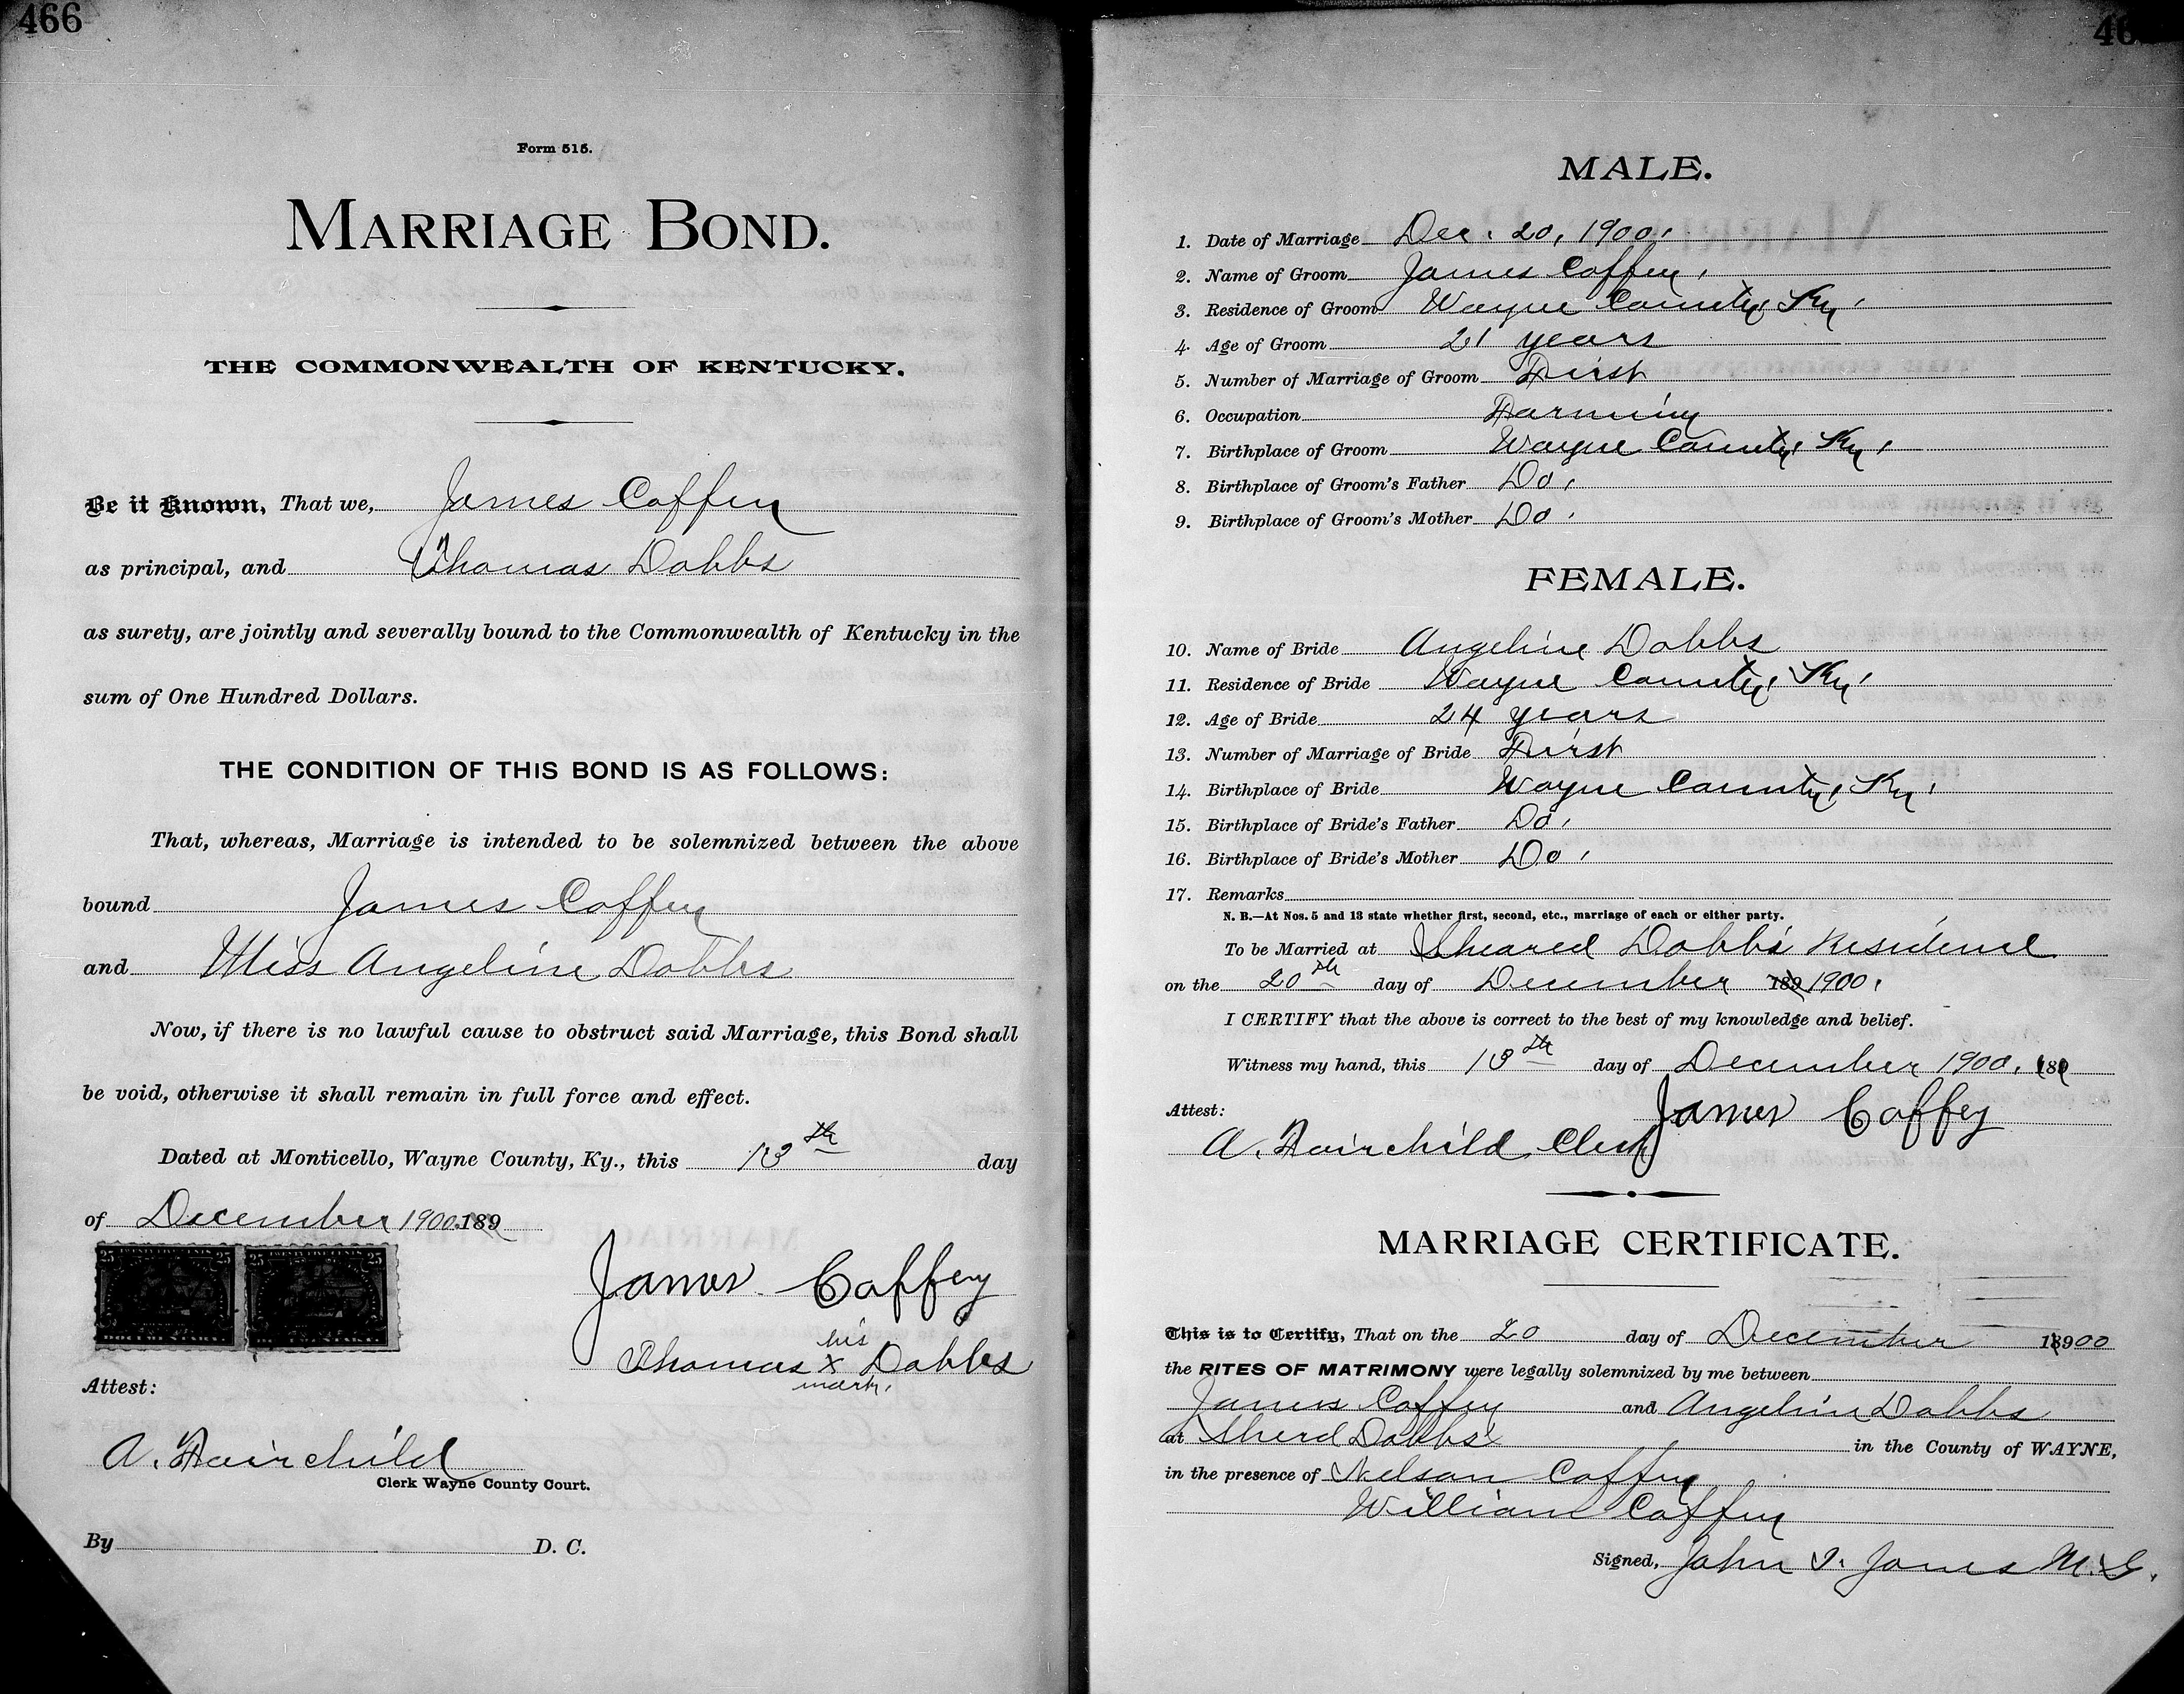 466
Form 515.
MARRIAGE BOND.
THE COMMONWEALTH OF KENTUCKY.
Be it Known, That we, James Coffey
as principal, and Thomas Dobbs
as surety, are jointly and severally bound to the Commonwealth of Kentucky in the
sum of One Hundred Dollars.
THE CONDITION OF THIS BOND IS AS FOLLOWS:
That, whereas, Marriage is intended to be solemnized between the above
bound James Coffey
and Miss Angeline Dobbs
Now, if there is no lawful cause to obstruct said Marriage, this Bond shall
be void, otherwise it shall remain in full force and effect.
Dated at Monticello, Wayne County, Ky., this 13th day
of December 1900. 189
25 25 25 25
James Coffey
his
Thomas x Dobbs
mark.
Attest:
A. Fairchild
Clerk Wayne County Court.
By D. C.
MALE.
1. Date of Marriage Dec. 20, 1900.
2. Name of Groom James Coffey.
3. Residence of Groom Wayne County, Ky.
4. Age of Groom 21 years
5. Number of Marriage of Groom First
6. Occupation Farming
7. Birthplace of Groom Wayne County, Ky.
8. Birthplace of Groom's Father Do.
9. Birthplace of Groom's Mother Do.
FEMALE.
10. Name of Bride Angeline Dobbs
11. Residence of Bride Wayne County, Ky.
12. Age of Bride 24 years
13. Number of Marriage of Bride First
14. Birthplace of Bride Wayne County, Ky.
15. Birthplace of Bride's Father Do.
16. Birthplace of Bride's Mother Do.
17. Remarks
N. B.—At Nos. 5 and 13 state whether first, second, etc., marriage of each or either party.
To be Married at Sheared Dobbs' Residence
on the 20th day of December 189 1900.
I CERTIFY that the above is correct to the best of my knowledge and belief.
Witness my hand, this 13th day of December 1900. 189
James Coffey
Attest:
A. Fairchild Clerk
MARRIAGE CERTIFICATE.
This is to Certify, That on the 20 day of December 18900
the RITES OF MATRIMONY were legally solemnized by me between
James Coffey and Angeline Dobbs
at Sherd Dobbs' in the County of WAYNE,
in the presence of Nelson Coffey
William Coffey
Signed, John I. Jones M. G.